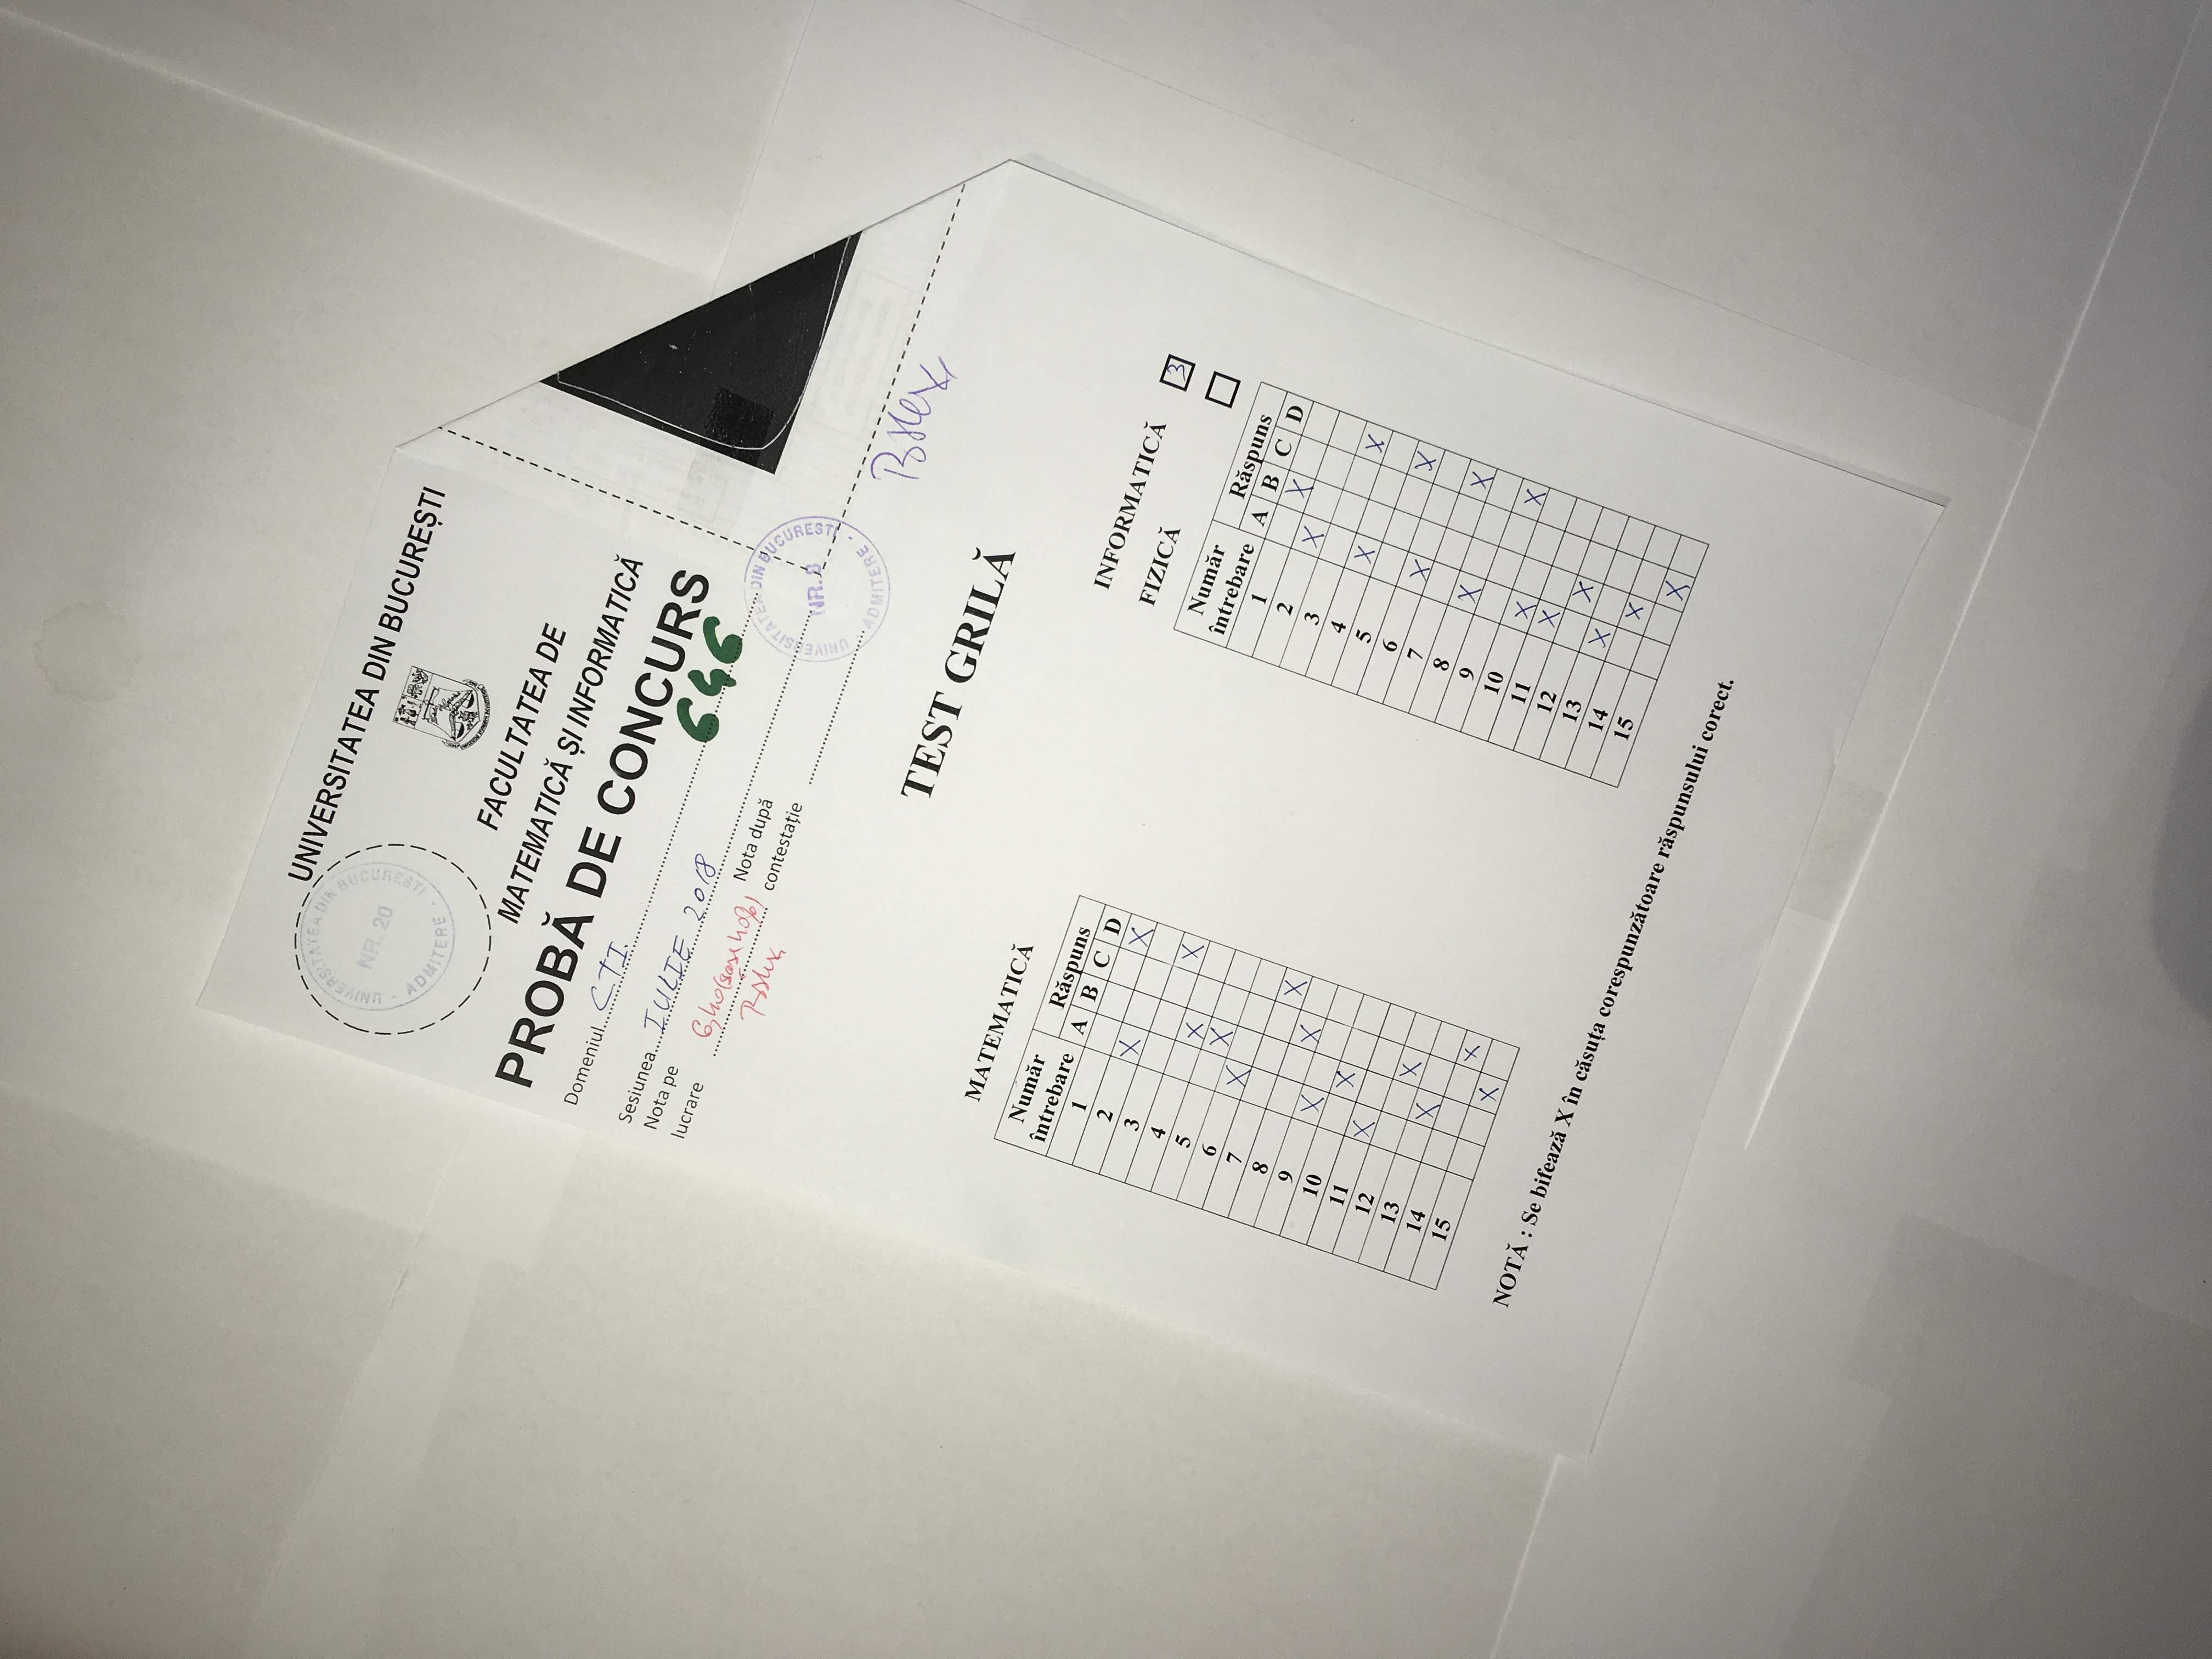 UNIVERSITATEA DIN BUCUREȘTI
UNIVERSITATEA DIN BUCUREȘTI
NR. 20
- ADMITERE -
FACULTATEA DE
MATEMATICĂ ȘI INFORMATICĂ
PROBĂ DE CONCURS
Domeniul CTI
646
Sesiunea IULIE 2018
Nota pe lucrare 6,40 (șase 40%)
Nota după contestație
UNIVERSITATEA DIN BUCUREȘTI
NR. 8
- ADMITERE -
TEST GRILĂ
MATEMATICĂ
Număr întrebare Răspuns
A B C D
1 X
2 X
3 X
4 X
5 X
6 X
7 X
8 X
9 X
10 X
11 X
12 X
13 X
14 X
15 X
INFORMATICĂ 3
FIZICĂ
Număr întrebare Răspuns
A B C D
1 X
2 X
3 X
4 X
5 X
6 X
7 X
8 X
9 X
10 X
11 X
12 X
13 X
14 X
15 X
NOTĂ : Se bifează X în căsuța corespunzătoare răspunsului corect.